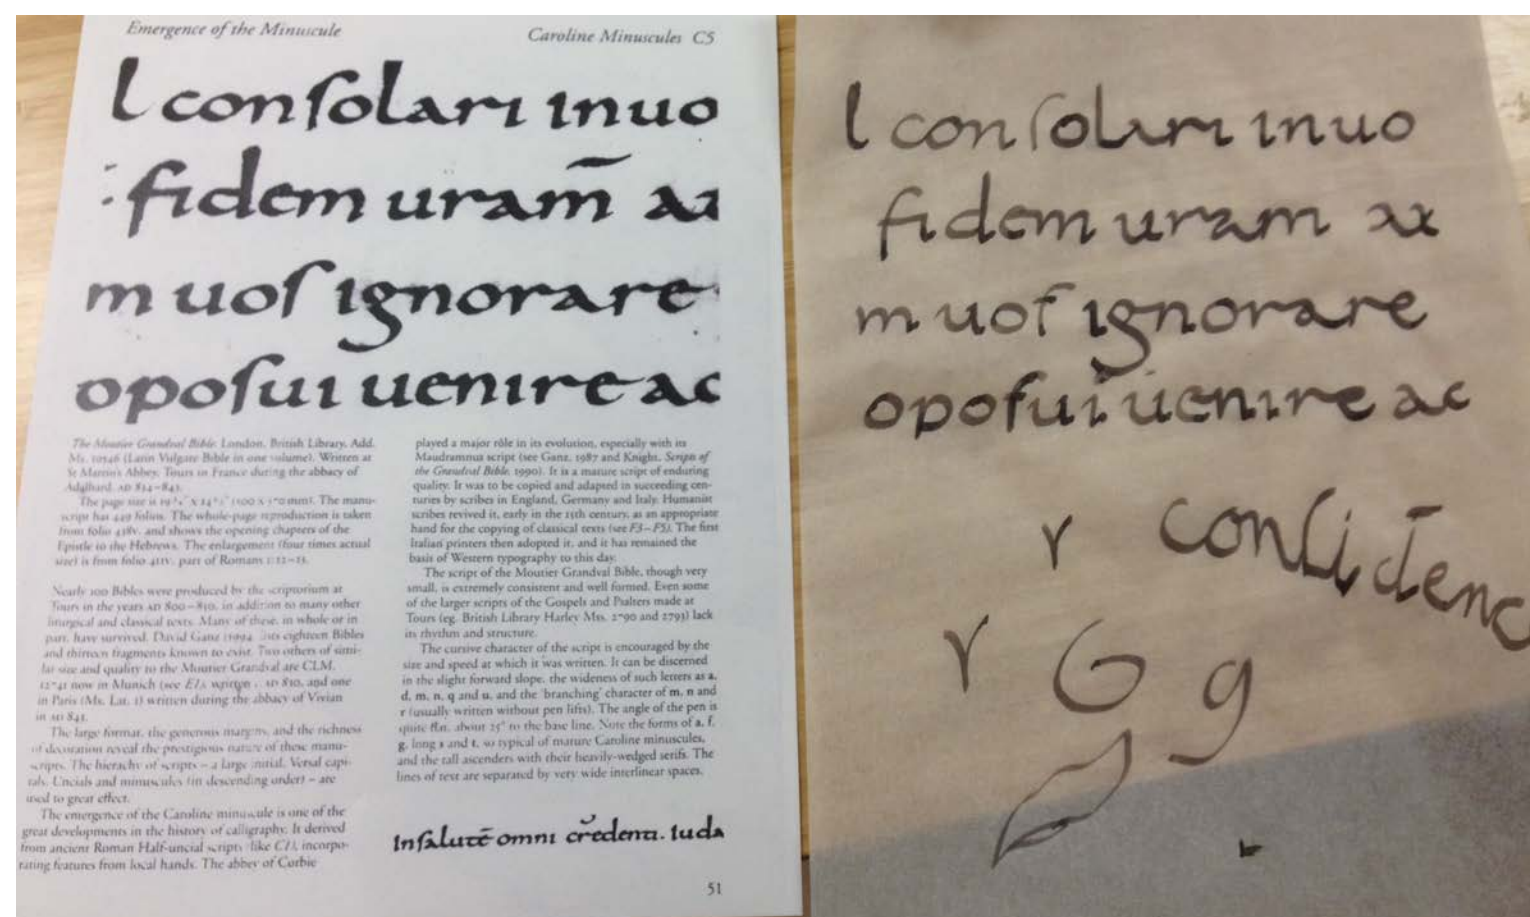 Emergence of the Minuscule
Caroline Minuscules C5
l conſolari inuo
fidem uram̄
m uoſ ignorare
opoſui uenire ac
The Moutier Grandval Bible. London, British Library, Add.
Ms. 10546 (Latin Vulgate Bible in one volume). Written at
St Martin's Abbey, Tours in France during the abbacy of
Adalhard, AD 834–843.
The page size is (500 x 370 mm). The manu-
script has 449 folios. The whole-page reproduction is taken
from folio and shows the opening chapters of the
Epistle to the Hebrews. The enlargement (four times actual
size) is from folio part of Romans 1:12–15.
Nearly 100 Bibles were produced by the scriptorium at
Tours in the years AD 800–850, in addition to many other
liturgical and classical texts. Many of these, in whole or in
part, have survived. David Ganz (1994) lists eighteen Bibles
and thirteen fragments known to exist. Two others of simi-
lar size and quality to the Moutier Grandval are CLM.
12741 now in Munich (see written AD 810, and one
in Paris (Ms. Lat. 1) written during the abbacy of Vivian
in AD 843.
The large format, the generous margins, and the richness
of decoration reveal the prestigious nature of these manu-
scripts. The hierachy of scripts – a large initial, Versal capi-
tals, Uncials and minuscules (in descending order) – are
used to great effect.
The emergence of the Caroline minuscule is one of the
great developments in the history of calligraphy. It derived
from ancient Roman Half-uncial scripts like incorpo-
rating features from local hands. The abbey of Corbie
played a major rôle in its evolution, especially with its
Maudramnus script (see Ganz, 1987 and Knight, Scripts of
the Grandval Bible, 1990). It is a mature script of enduring
quality. It was to be copied and adapted in succeeding cen-
turies by scribes in England, Germany and Italy. Humanist
scribes revived it, early in the 15th century, as an appropriate
hand for the copying of classical texts (see F3–F5). The first
Italian printers then adopted it, and it has remained the
basis of Western typography to this day.
The script of the Moutier Grandval Bible, though very
small, is extremely consistent and well formed. Even some
of the larger scripts of the Gospels and Psalters made at
Tours (eg. British Library Harley Mss. 2790 and 2793) lack
its rhythm and structure.
The cursive character of the script is encouraged by the
size and speed at which it was written. It can be discerned
in the slight forward slope, the wideness of such letters as a,
d, m, n, q and u, and the 'branching' character of m, n and
r (usually written without pen lifts). The angle of the pen is
quite flat, about 25° to the base line. Note the forms of a, f,
g, long s and t, so typical of mature Caroline minuscules,
and the tall ascenders with their heavily-wedged serifs. The
lines of text are separated by very wide interlinear spaces.
Inſalutē omni credenti. Iuda
51
l conſolari inuo
fidem uram
m uoſ ignorare
opoſui uenire ac
r confidenc
r G g